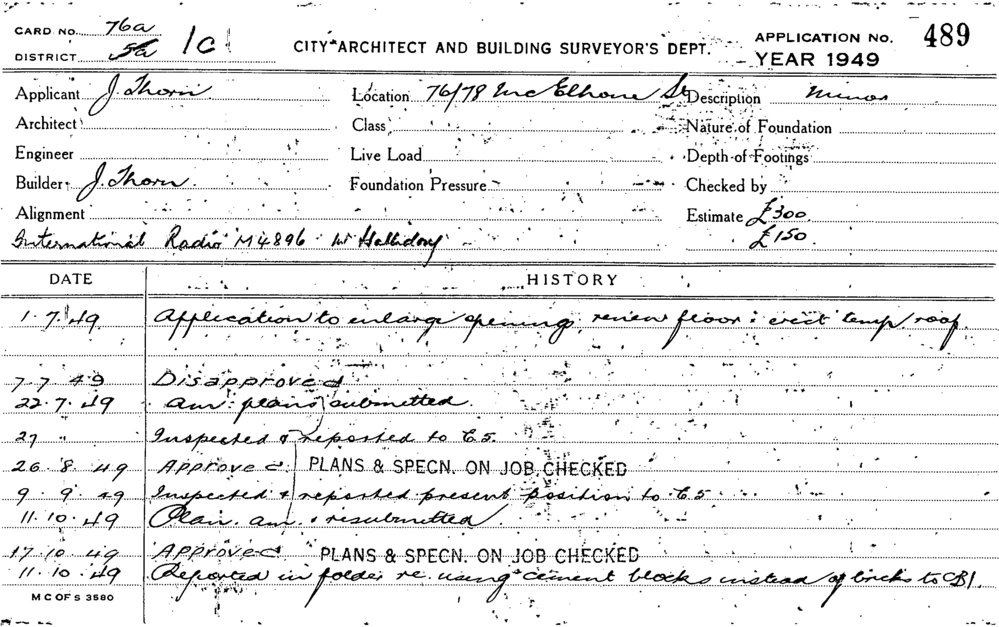 CARD NO. 76a
DISTRICT 5a 1c
CITY ARCHITECT AND BUILDING SURVEYOR'S DEPT.
APPLICATION NO. 489
YEAR 1949
Applicant J. Thorn Location 76/78 McElhone St Description Minor
Architect Class Nature of Foundation
Engineer Live Load Depth of Footings
Builder J. Thorn Foundation Pressure Checked by
Alignment Estimate £300
International Radio M4896 Mr Halliday £150
DATE HISTORY
1.7.49 Application to enlarge opening, renew floor & erect temp. roof.
7.7.49 Disapproved
22.7.49 am. plans submitted.
27 " Inspected & reported to E.5.
26.8.49 Approved PLANS & SPECN. ON JOB CHECKED
9.9.49 Inspected & reported present position to E.5
11.10.49 Plan am. & resubmitted.
17.10.49 Approved PLANS & SPECN. ON JOB CHECKED
11.10.49 Reported in folder re. using cement blocks instead of bricks to CB1.
M C OF S 3580